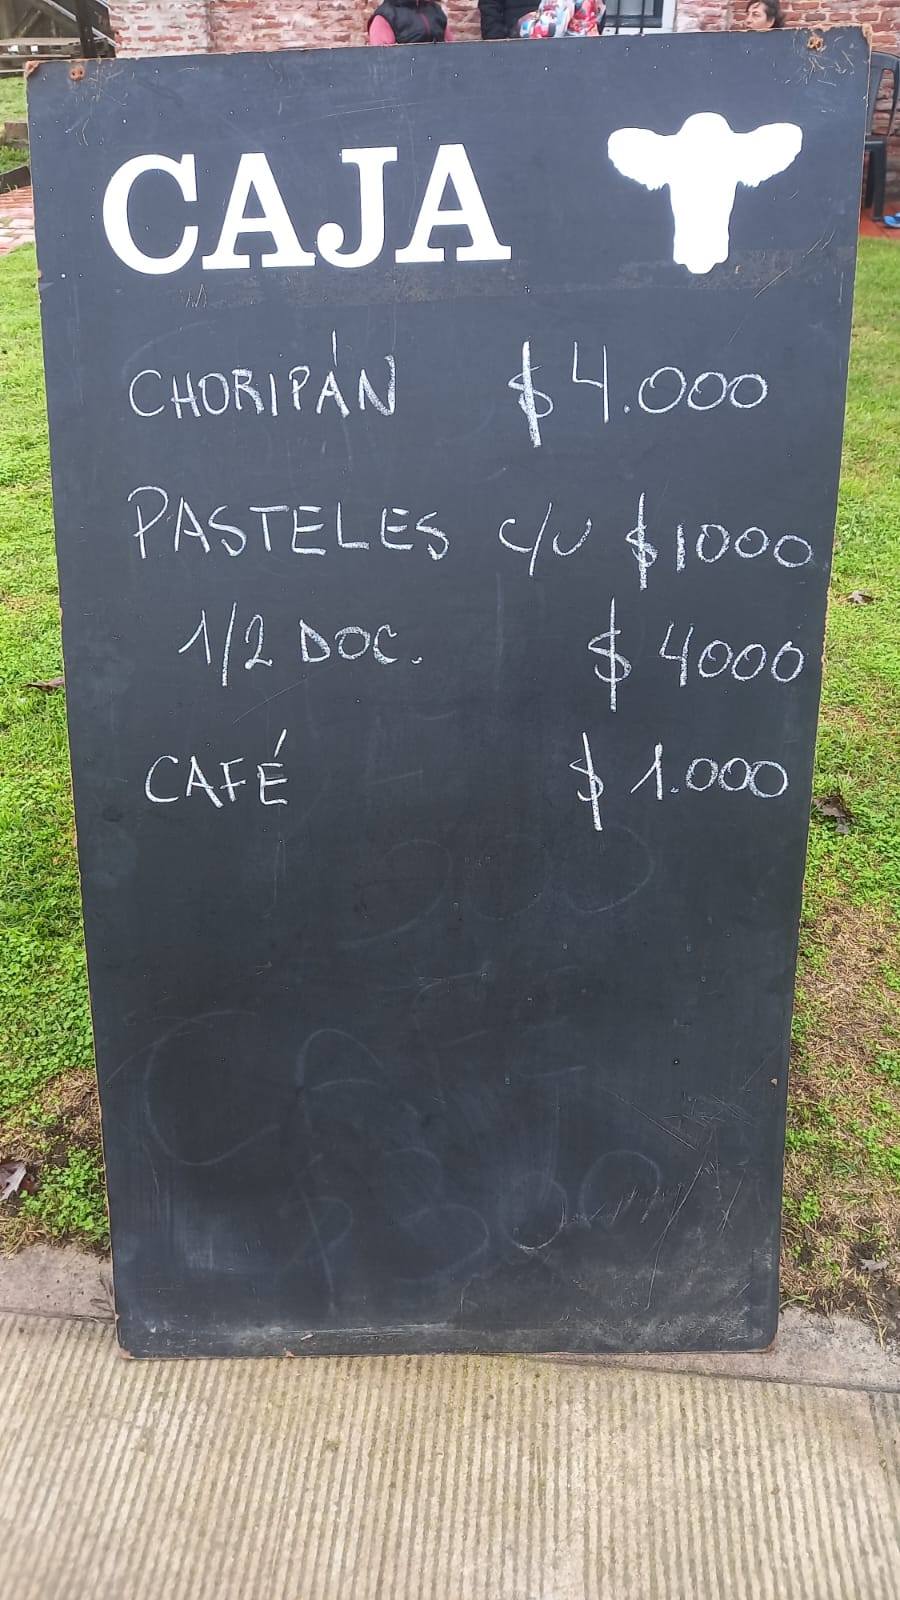 CAJA
CHORIPÁN $4.000
PASTELES c/u $1000
1/2 DOC. $4000
CAFÉ $1.000